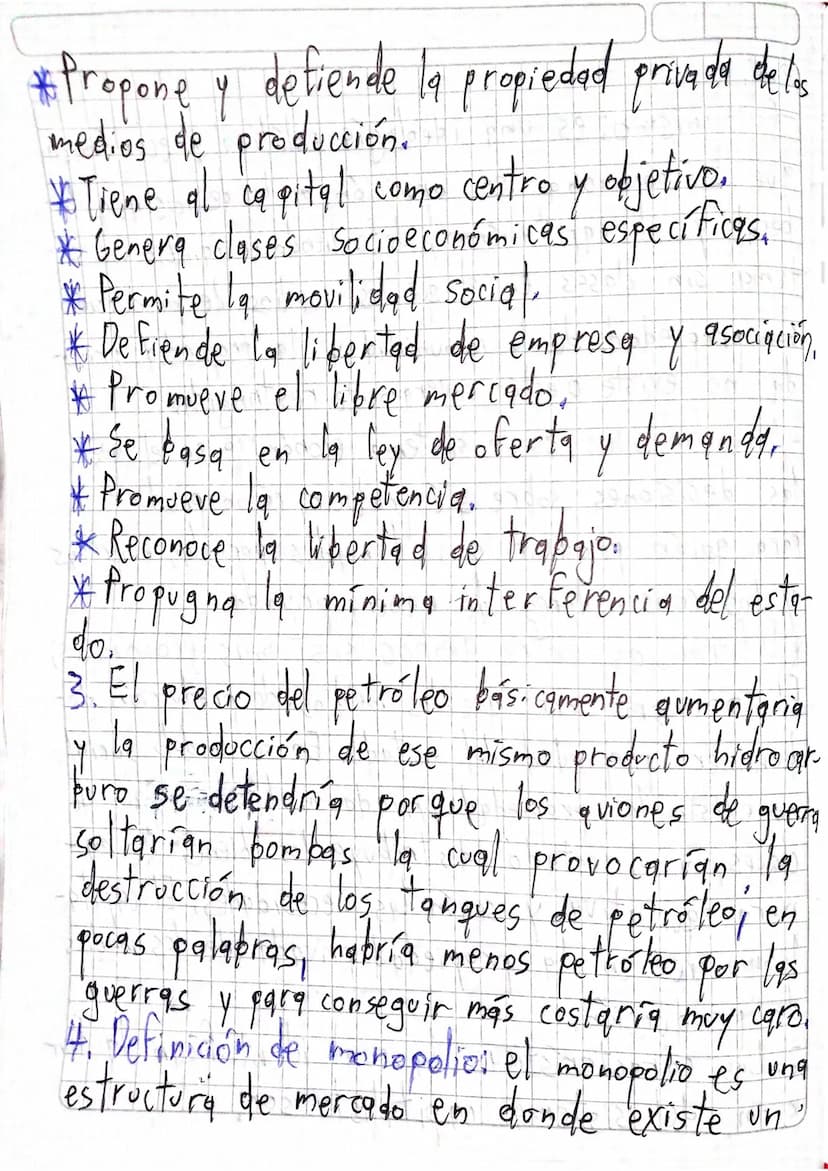 * Propone y defiende la propiedad privada de los
medios de producción.
* Tiene al capital como centro y objetivo.
* Genera clases socioeconómicas específicas.
* Permite la movilidad social.
* Defiende la libertad de empresa y asociación.
* Promueve el libre mercado.
* Se basa en la ley de oferta y demanda.
* Promueve la competencia.
* Reconoce la libertad de trabajo.
* Propugna la mínima interferencia del esta-
do.
3. El precio del petróleo básicamente aumentaria
y la producción de ese mismo producto hidrocar
buro se detendría porque los aviones de guerra
soltarían bombas la cual provocarían la
destrucción de los tanques de petróleo; en
pocas palabras, habría menos petróleo por las
guerras y para conseguir más costaría muy caro.
4. Definición de monopolio: el monopolio es una
estructura de mercado en donde existe un